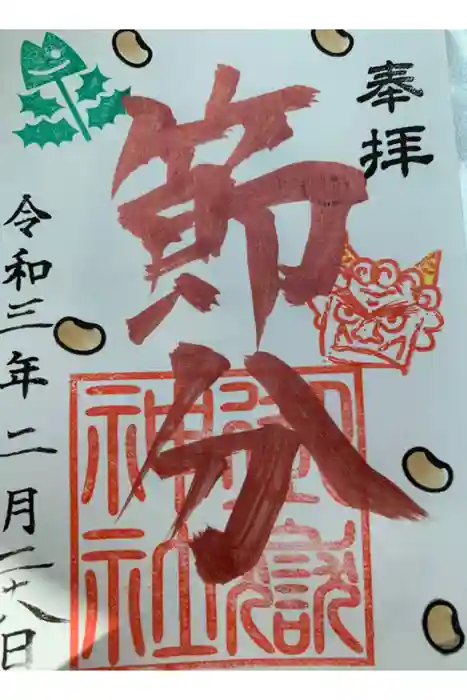 奉拝
節分
御嶽
神社
令和三年二月二十八日